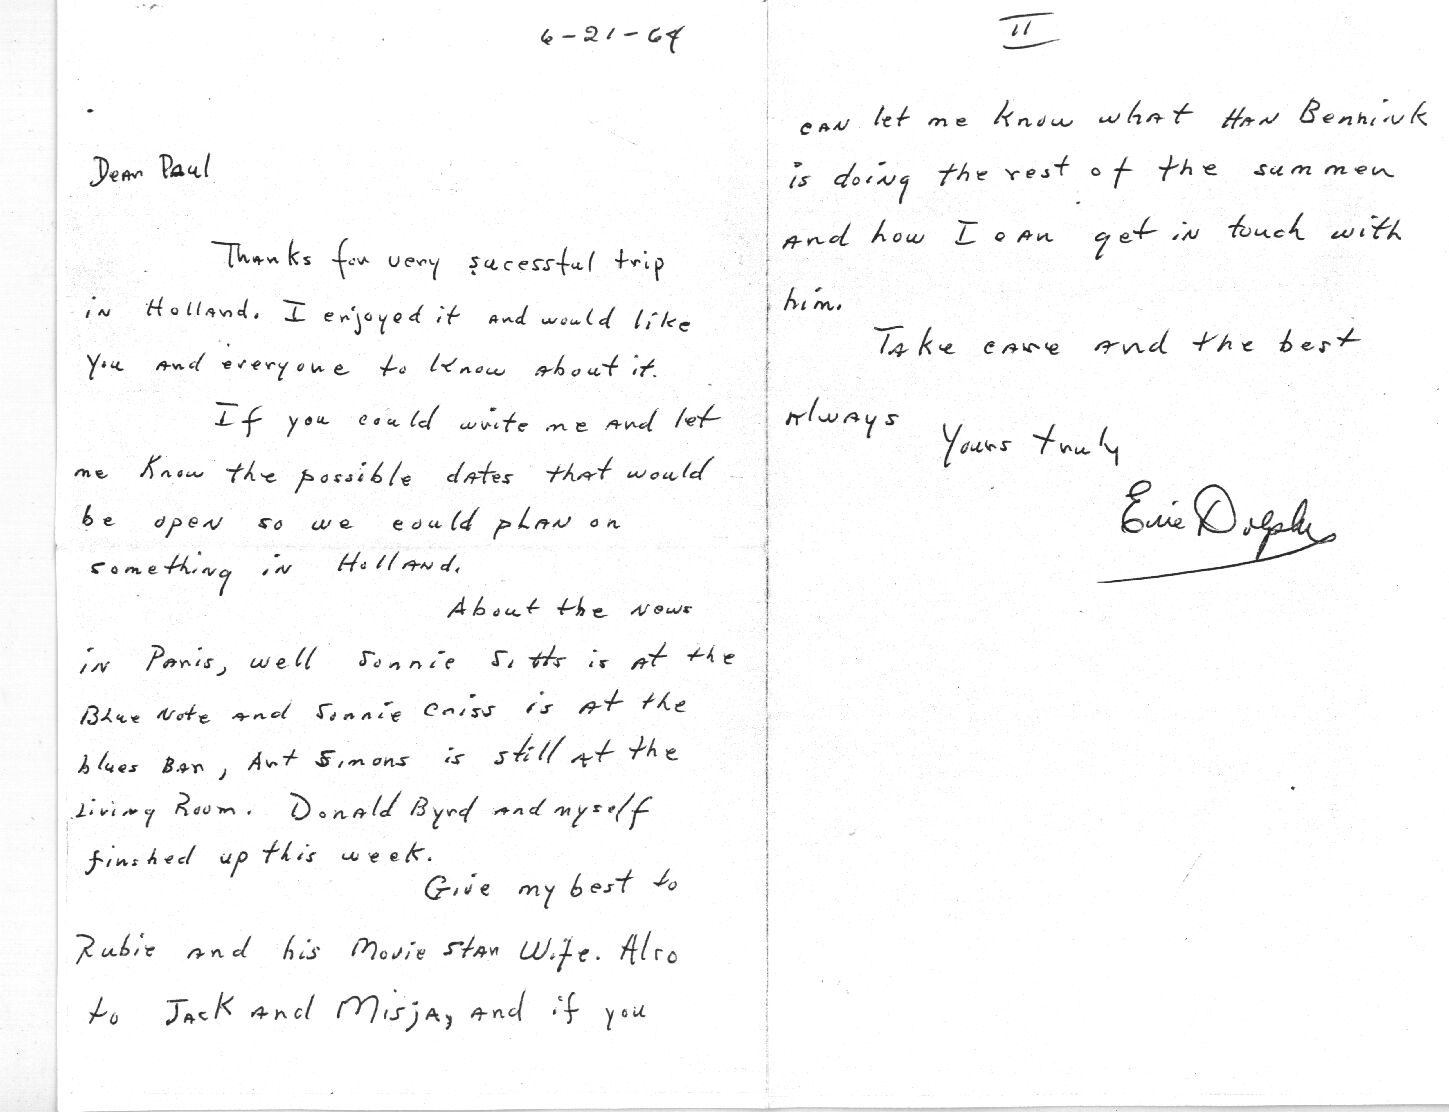 6-21-64
Dear Paul
Thanks for very sucessful trip
in Holland. I enjoyed it and would like
you and everyone to know about it.
If you could write me and let
me know the possible dates that would
be open so we could plan on
something in Holland.
About the news
in Paris, well Sonnie Sitts is at the
Blue Note and Sonnie Criss is at the
blues Bar, Art Simons is still at the
Living Room. Donald Byrd and myself
finshed up this week.
Give my best to
Rubie and his Movie star Wife. Also
to Jack and Misja, and if you
II
can let me know what Han Bennink
is doing the rest of the summer
and how I can get in touch with
him.
Take care and the best
Always
Yours truly
Eric Dolphy